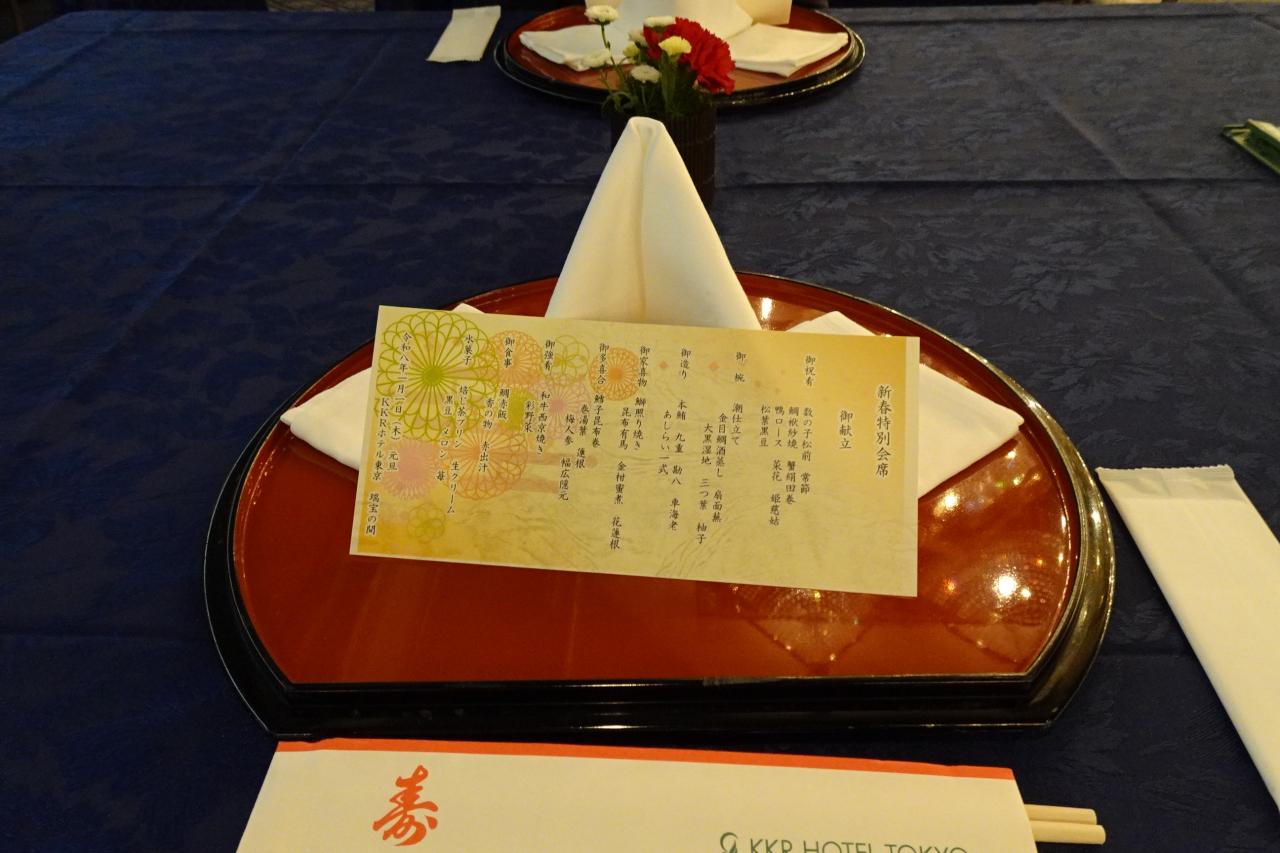 新春特別会席
御献立
御祝肴 数の子松前 常節
鯛椒紗焼 蟹絹田巻
鴨ロース 菜花 姫慈姑
松葉黒豆
御椀 潮仕立て
金目鯛酒蒸し 扇面蕪
大黒湿地 三つ葉 柚子
御造り 本鮪 九重 勘八 車海老
あしらい一式
御家喜物 鰤照り焼き
昆布有馬 金柑蜜煮 花蓮根
御多喜合 鱈子昆布巻
春湯葉 蓮根
梅人参 幅広隠元
御強肴 和牛西京焼き
彩野菜
御食事 鯛赤飯
香の物 赤出汁
水菓子 焙じ茶プリン 生クリーム
黒豆 メロン 苺
令和八年一月一日(木)元旦
KKRホテル東京 瑞宝の間
寿
KKR HOTEL TOKYO